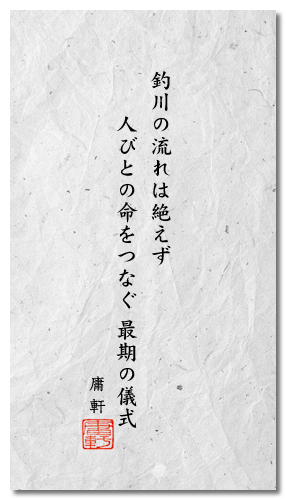 釣川の流れは絶えず
人びとの命をつなぐ 最期の儀式
庸軒
庸軒